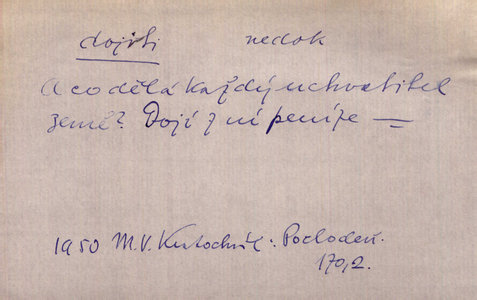 dojiti nedok
A co dělá každý uchvatitel
země? Dojí z ní peníze —
1950 M.V. Kratochvíl: Pochodeň.
170,2.